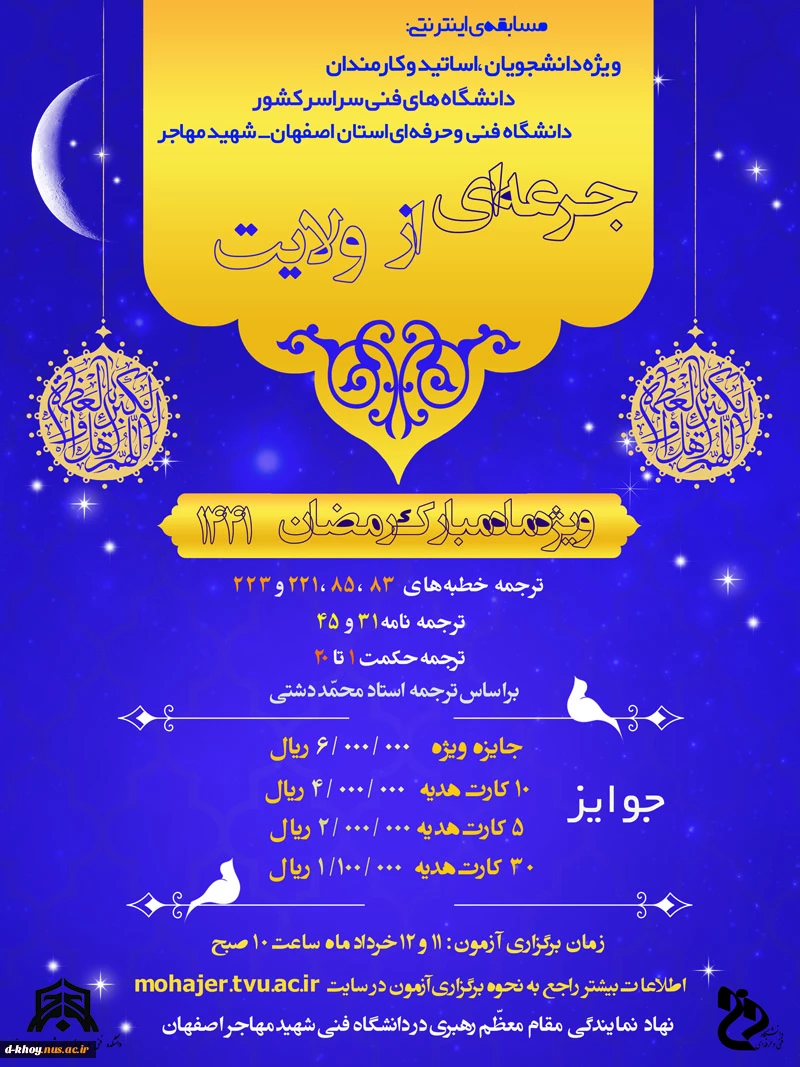 مسابقه‌ی اینترنتی:
ویژه دانشجویان ،اساتید و کارمندان
دانشگاه های فنی سراسر کشور
دانشگاه فنی و حرفه ای استان اصفهان_ شهید مهاجر
جرعه‌ای از ولایت
اللهم اهل الکبریاء و العظمة
اللهم اهل الکبریاء و العظمة
ویژه ماه مبارک رمضان ۱۴۴۱
ترجمه خطبه های ۸۳ ،۸۵ ،۲۲۱ و ۲۲۳
ترجمه نامه ۳۱ و ۴۵
ترجمه حکمت ۱ تا ۲۰
براساس ترجمه استاد محمّد دشتی
جوایز
جایزه ویژه ۶/۰۰۰/۰۰۰ ریال
۱۰ کارت هدیه ۴/۰۰۰/۰۰۰ ریال
۵ کارت هدیه ۲/۰۰۰/۰۰۰ ریال
۳۰ کارت هدیه ۱/۱۰۰/۰۰۰ ریال
زمان برگزاری آزمون: ۱۱ و ۱۲ خرداد ماه ساعت ۱۰ صبح
اطلاعات بیشتر راجع به نحوه برگزاری آزمون در سایت mohajer.tvu.ac.ir
نهاد نمایندگی مقام معظّم رهبری در دانشگاه فنی شهید مهاجر اصفهان
d-khoy.nus.ac.ir